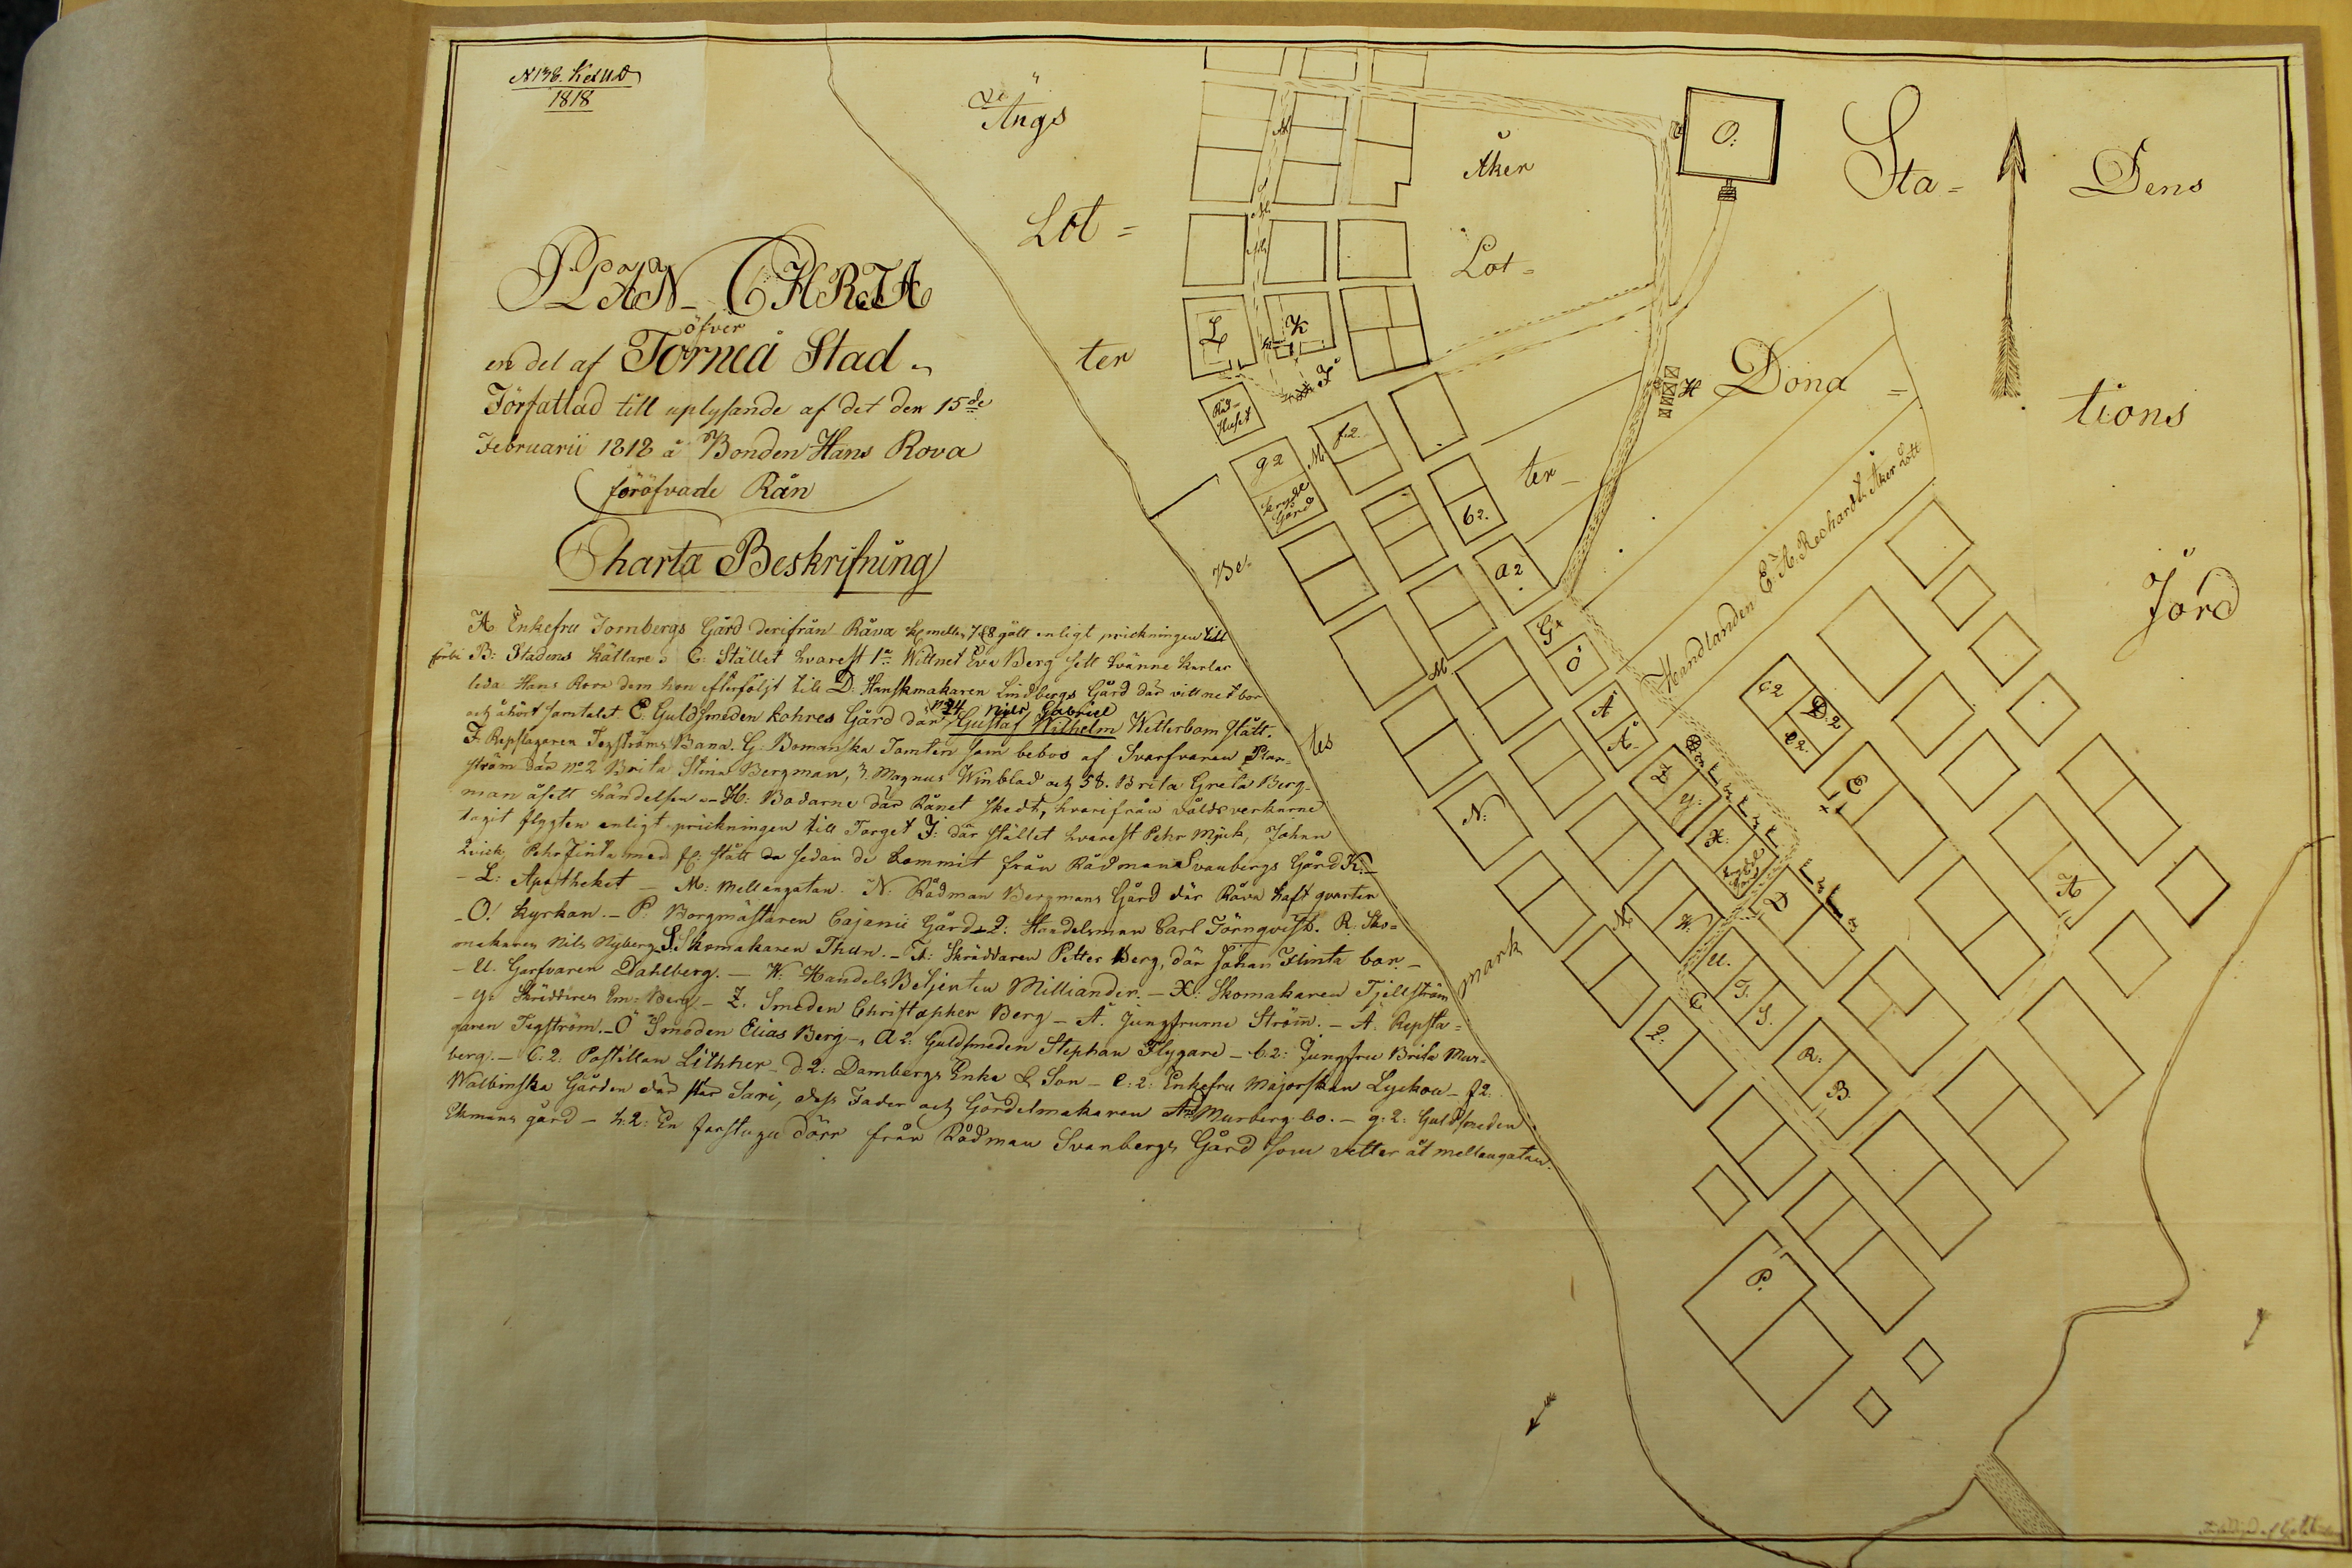 N 138.
1818
PLAN CHARTA
öfver
en del af Torneå Stad
Författad till uplysande af det den 15de
Februarii 1818 å Bonden Hans Rova
föröfvade Rån
Charta Beskrifning
A Enkefru Fornbergs Gård derifrån Råva kl mellan 7 & 8 gått enligt prickningen till
förbi B: Stadens Källare C: Stället hvarest 1a Wittnet Eva Berg sett tvänne karlar
leda Hans Rova dem hon efterföljt till D: Handskmakaren Lindbergs Gård där vittnet bor
och åhört samtalet E. Guldsmeden Kohres Gård där Gustaf Wilhelm Wetterbom stått.
Nils Gabriel
F. Repslagaren Tegströms Bana. G. Bomanska Tomten som bebos af Svarfvaren
ström där No 2 Brita Stina Bergman, 3. Magnus Winblad och 58. Brita Greta Berg-
man åsett händelsen H: Bodarne där Rånet skedt, hvarifrån våldsverkarne
tagit flygten enligt prickningen till Torget J: där stället hvarest Pehr Mjuk, Johan
Qvick, Pehr Finta med fl: stått da sedan de kommit från Rådman Svanbergs Gård K:
L: Apotheket M: Mellangatan. N: Rådman Bergmans Gård där Råva haft qvarter
O: Kyrkan. P: Borgmästaren Cajanii Gård Q: Handelsman Carl Törnqvist. R: Sko-
makaren Nils Nyberg S. Skomakaren Thun. T: Skräddaren Petter Berg, där Johan Flinta bor.
U. Garfvaren Dahlberg. W: Handels Betjenten Milliander. X: Skomakaren Tjellström
y: Skräddaren Em: Berg Z. Smeden Christopher Berg Å. Jungfrurne Ström. Ä. Repsla-
garen Tegström. Ö Smeden Elias Berg a 2: Guldsmeden Stephan Flygare b: 2: Jungfru Brita Mur-
berg. C: 2: Postillan Lithner d 2: Dambergs Enka & Son e: 2: Enkefru Majorskan Lyckou f 2:
Walbinska Gården där står Sari, dess Fader och Gördelmakaren Murberg bo. g: 2: Guldsmeden
Ekmans gård h: 2: En farstugu dörr från Rådman Svanbergs Gård som vetter åt mellangatan.
Ängs
Lot =
ter
Åker
Lot =
ter
Sta =
Dens
Dona =
tions
Jord
Be-
tes
mark
Handlanden E. A. Rechardts Åker Lott
O:
L
K
J
Råd-
Huset
H
g 2
Krydde
Gård
f2.
M
b2.
a 2
G
Ö
M
Ä
Å
Z
y:
X:
Krydde
Gård
D
c 2
D: 2
e 2.
E
A
N:
W.
U.
T.
S.
C
Q:
R:
B.
P.